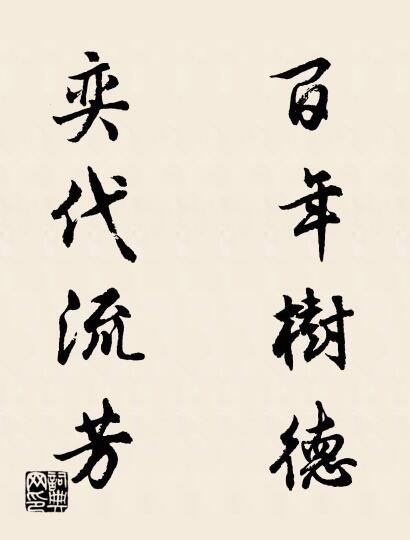 百年樹德
奕代流芳
詞典網印